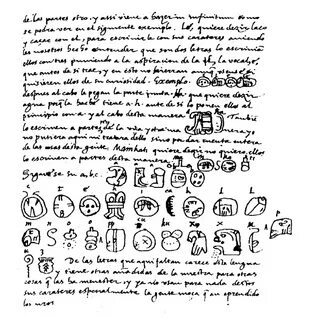 de las partes otro, y assi viene a hazer in infinitum como
se podra ver en el siguiente exemplo. Lé, quiere dezir laço
y caçar con el, para escrivirle con sus carateres aviendo
les nosotros hecho entender que son dos letras lo escrivian
ellos con tres puniendo a la aspiracion de la l la vocal é,
que antes de si trae, y en esto no hierran aunque
quisieren ellos de su curiosidad. Exemplo:
despues al cabo le pegan la parte junta. Ha que quiere dezir
agua porque la hache tiene a. h. ante de si lo ponen ellos al
principio con a. y al cabo desta manera Tambie
lo escriven a partes de la una y otra manera yo
no pusiera aqui ni tratara dello sino por dar cuenta entera
de las cosas desta gente. Mainkati quiere dezir no quiero ellos
lo escriven a partes desta manera
ma i n ka ti
Siguese su a.b.c.
ca k l
m n o o p pp cu ku x x u u z
De las letras que aqui faltan carece esta lengua
y tiene otras añadidas de la nuestra para otras
cosas que las ha menester, y ya no usan para nada destos
sus carateres especialmente la gente moça que an aprendido
los nros